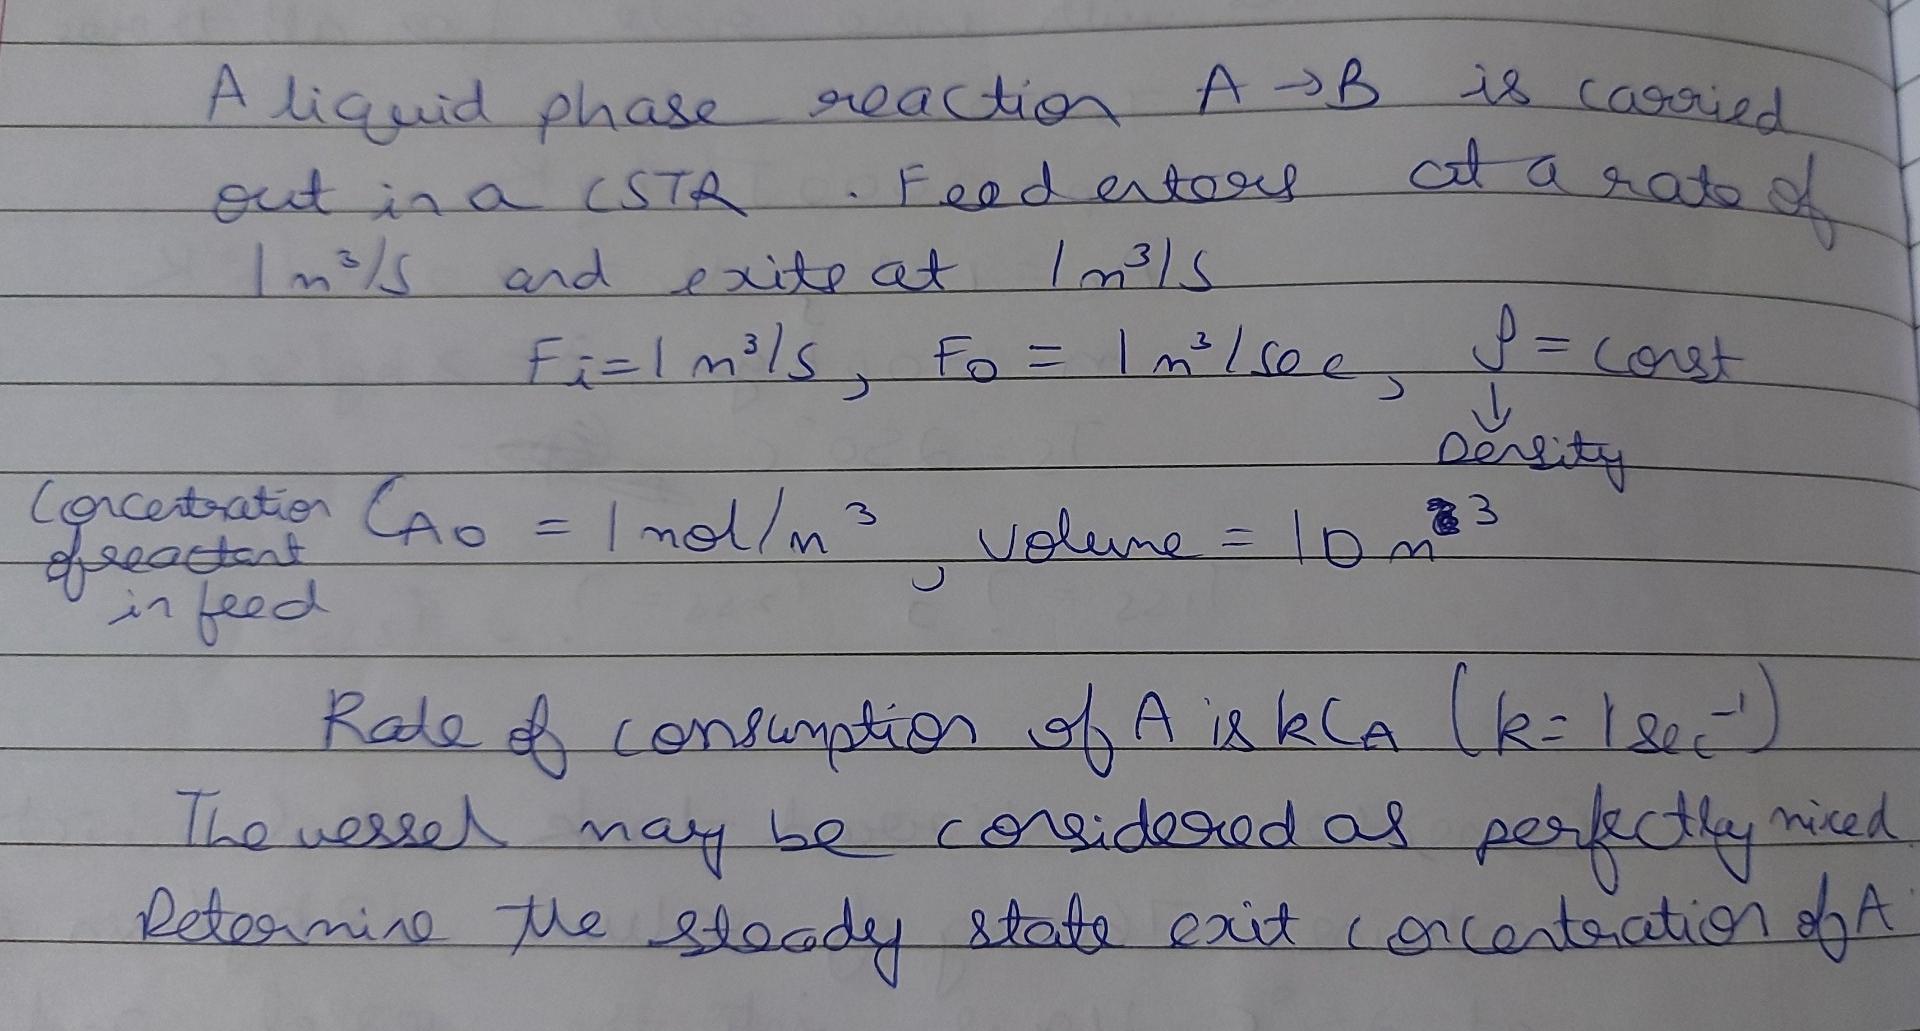 A liquid phase reaction A → B is carried
out in a CSTR . Feed enters at a rate of
1 m³/s and exits at 1 m³/s
Fi = 1 m³/s, Fo = 1 m³/sec, ρ = const
↓
Density
Concentration of reactant in feed CAO = 1 mol/m³, volume = 10 m³
Rate of consumption of A is kCA (k = 1 sec⁻¹)
The vessel may be considered as perfectly mixed
Determine the steady state exit concentration of A